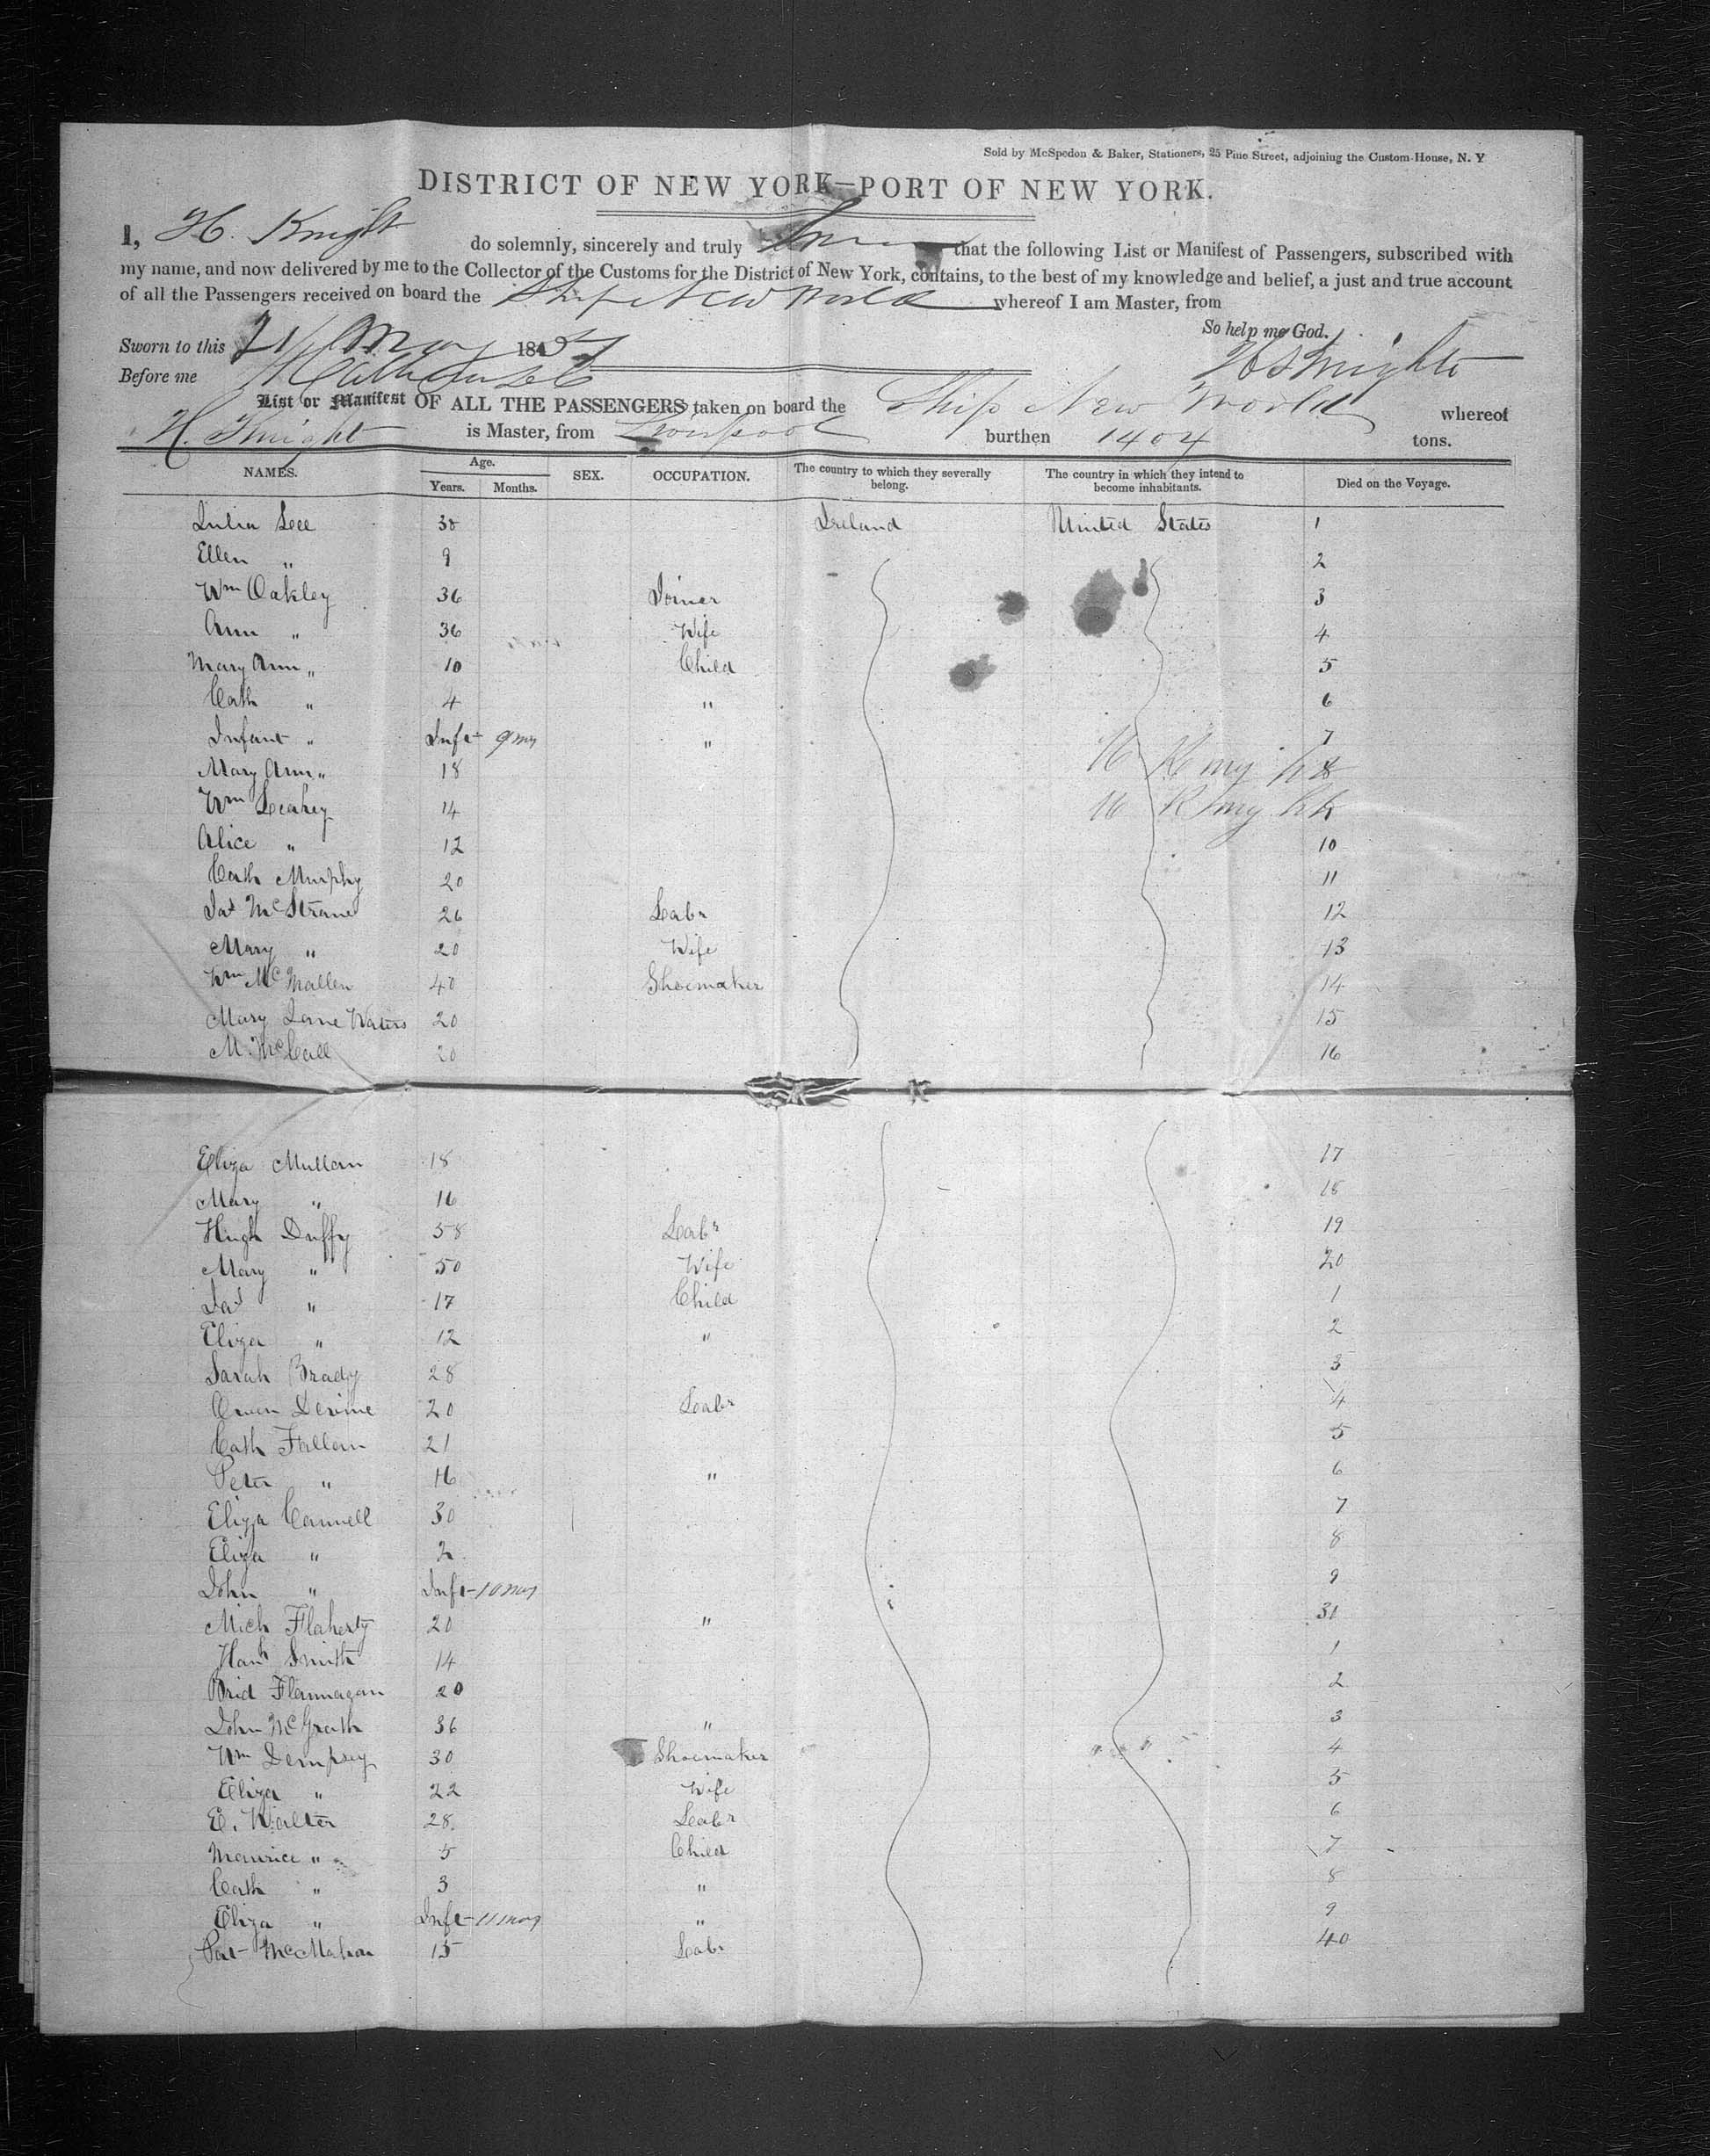 Sold by McSpedon & Baker, Stationers, 25 Pine Street, adjoining the Custom-House, N. Y
DISTRICT OF NEW YORK—PORT OF NEW YORK.
I, H. Knight do solemnly, sincerely and truly that the following List or Manifest of Passengers, subscribed with
my name, and now delivered by me to the Collector of the Customs for the District of New York, contains, to the best of my knowledge and belief, a just and true account
of all the Passengers received on board the Ship New World whereof I am Master, from
So help me God.
Sworn to this 184
Before me
List or Manifest OF ALL THE PASSENGERS taken on board the Ship New World whereof
H. Knight is Master, from Liverpool burthen 1404 tons.
NAMES. Age. SEX. OCCUPATION. The country to which they severally belong. The country in which they intend to become inhabitants. Died on the Voyage.
Years. Months.
Julia Lee 38 Ireland United States 1
Ellen " 9 2
Wm Oakley 36 Joiner 3
Ann " 36 Wife 4
Mary Ann " 10 Child 5
Cath " 4 " 6
Infant " Inft 9 mos " 7
Mary Ann " 18
Wm Leahey 14
Alice " 12 10
Cath Murphy 20 11
Jas McStrane 26 Labr 12
Mary " 20 Wife 13
Wm McMallen 40 Shoemaker 14
Mary Jane Waters 20 15
M. McCall 20 16
Eliza Mullan 18 17
Mary " 16 18
Hugh Duffy 58 Labr 19
Mary " 50 Wife 20
Jas " 17 Child 1
Eliza " 12 " 2
Sarah Brady 28 3
Owen Devine 20 Labr 4
Cath Fallan 21 5
Peter " 16 " 6
Eliza Cannell 30 7
Eliza " 2 8
John " Inft 10 mos 9
Mich Flaherty 20 " 30
Hanh Smith 14 1
Brid Flannagan 20 2
John McGrath 36 " 3
Wm Dempsey 30 Shoemaker 4
Eliza " 22 Wife 5
E. Walter 28 Labr 6
Maurice " 5 Child 7
Cath " 3 " 8
Eliza " Inft 11 mos " 9
Pat McMahon 15 Labr 40